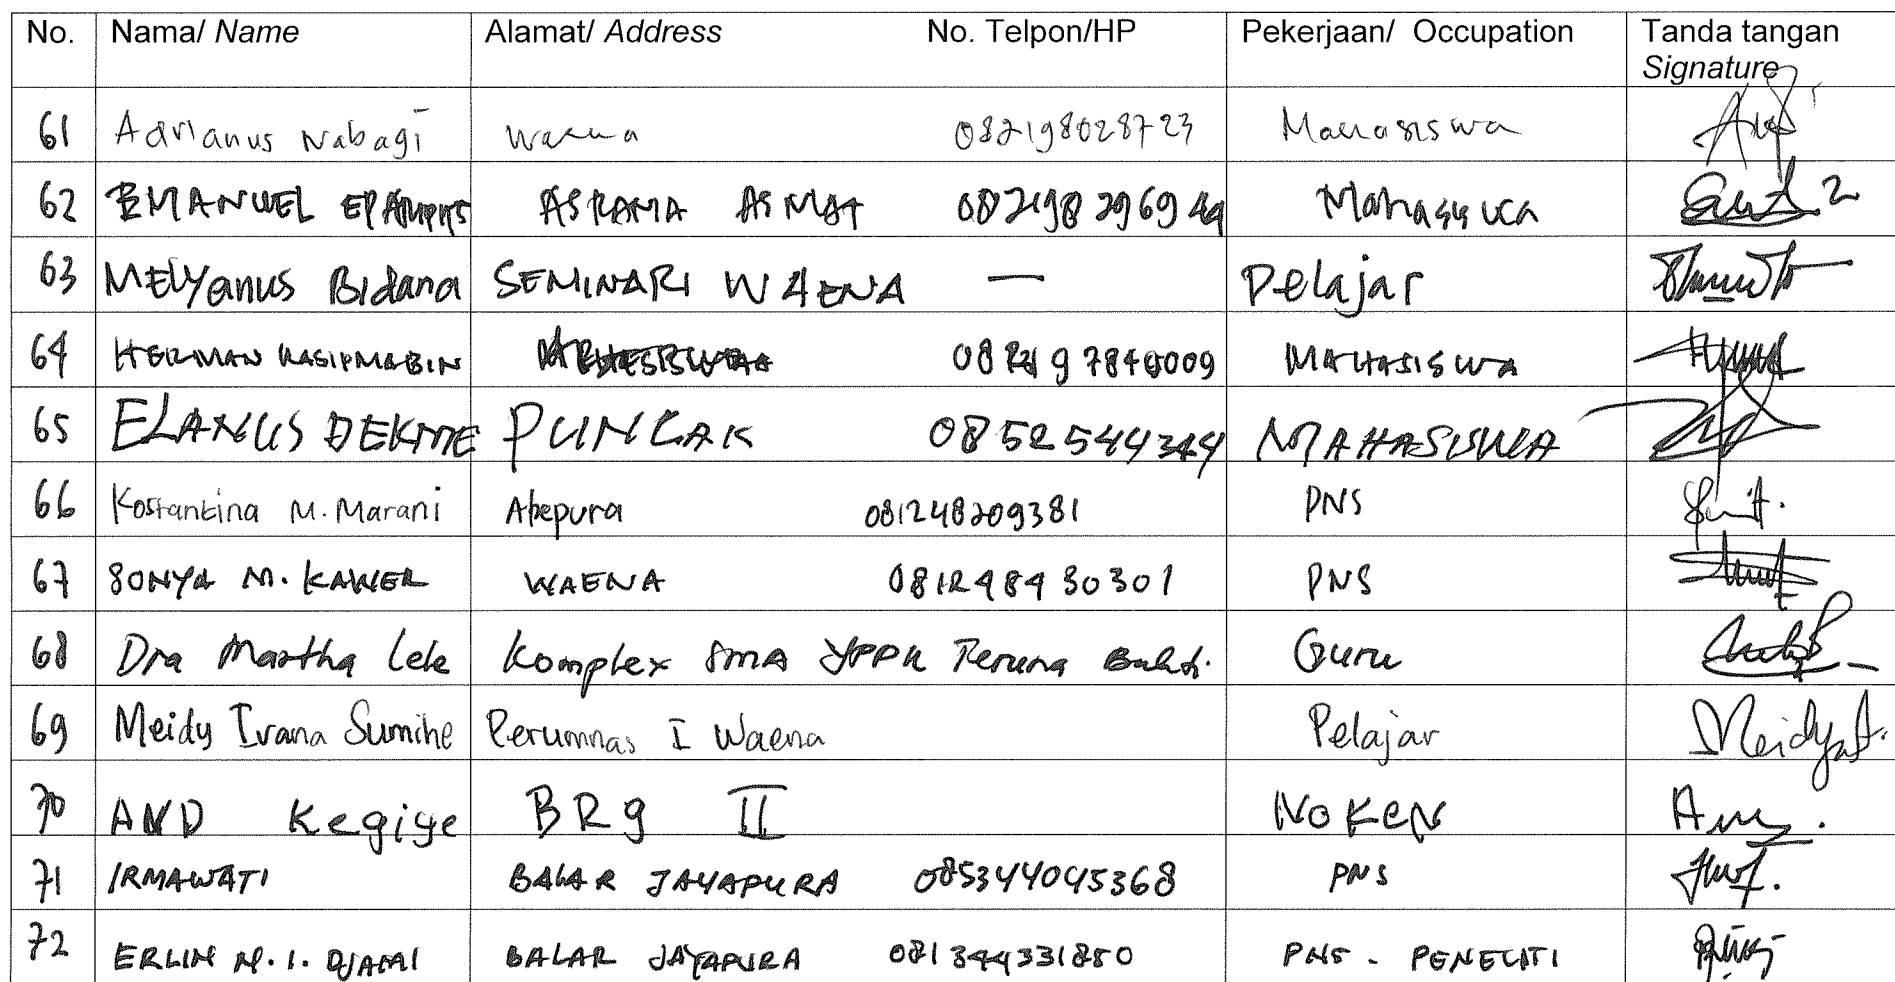 No. Nama/ Name Alamat/ Address No. Telpon/HP Pekerjaan/ Occupation Tanda tangan
Signature
61 Adrianus Nabagi Waena 082198028723 Mahasiswa
62 EMANUEL ASRAMA ASMAT Mahasiswa
63 MELYanus Bidana SEMINARI WAENA — Pelajar
64 HERMAN KASIPMABIN MAHASISWA
65 ELANUS DEKME PUNCAK 08525444344 MAHASISWA
66 Kostantina M. Marani Abepura 081248209381 PNS
67 SONYA M. KAWER WAENA 081248430301 PNS
68 Dra Martha Lele Komplex SMA YPPK Teruna Bakti. Guru
69 Meidy Ivana Sumihe Perumnas I Waena Pelajar
70 AND Kegiye BRg II NoKeN
71 IRMAWATI BALAR JAYAPURA 085344045368 PNS
72 ERLIN M. I. DJAMI BALAR JAYAPURA 081344331850 PNS - PENELITI